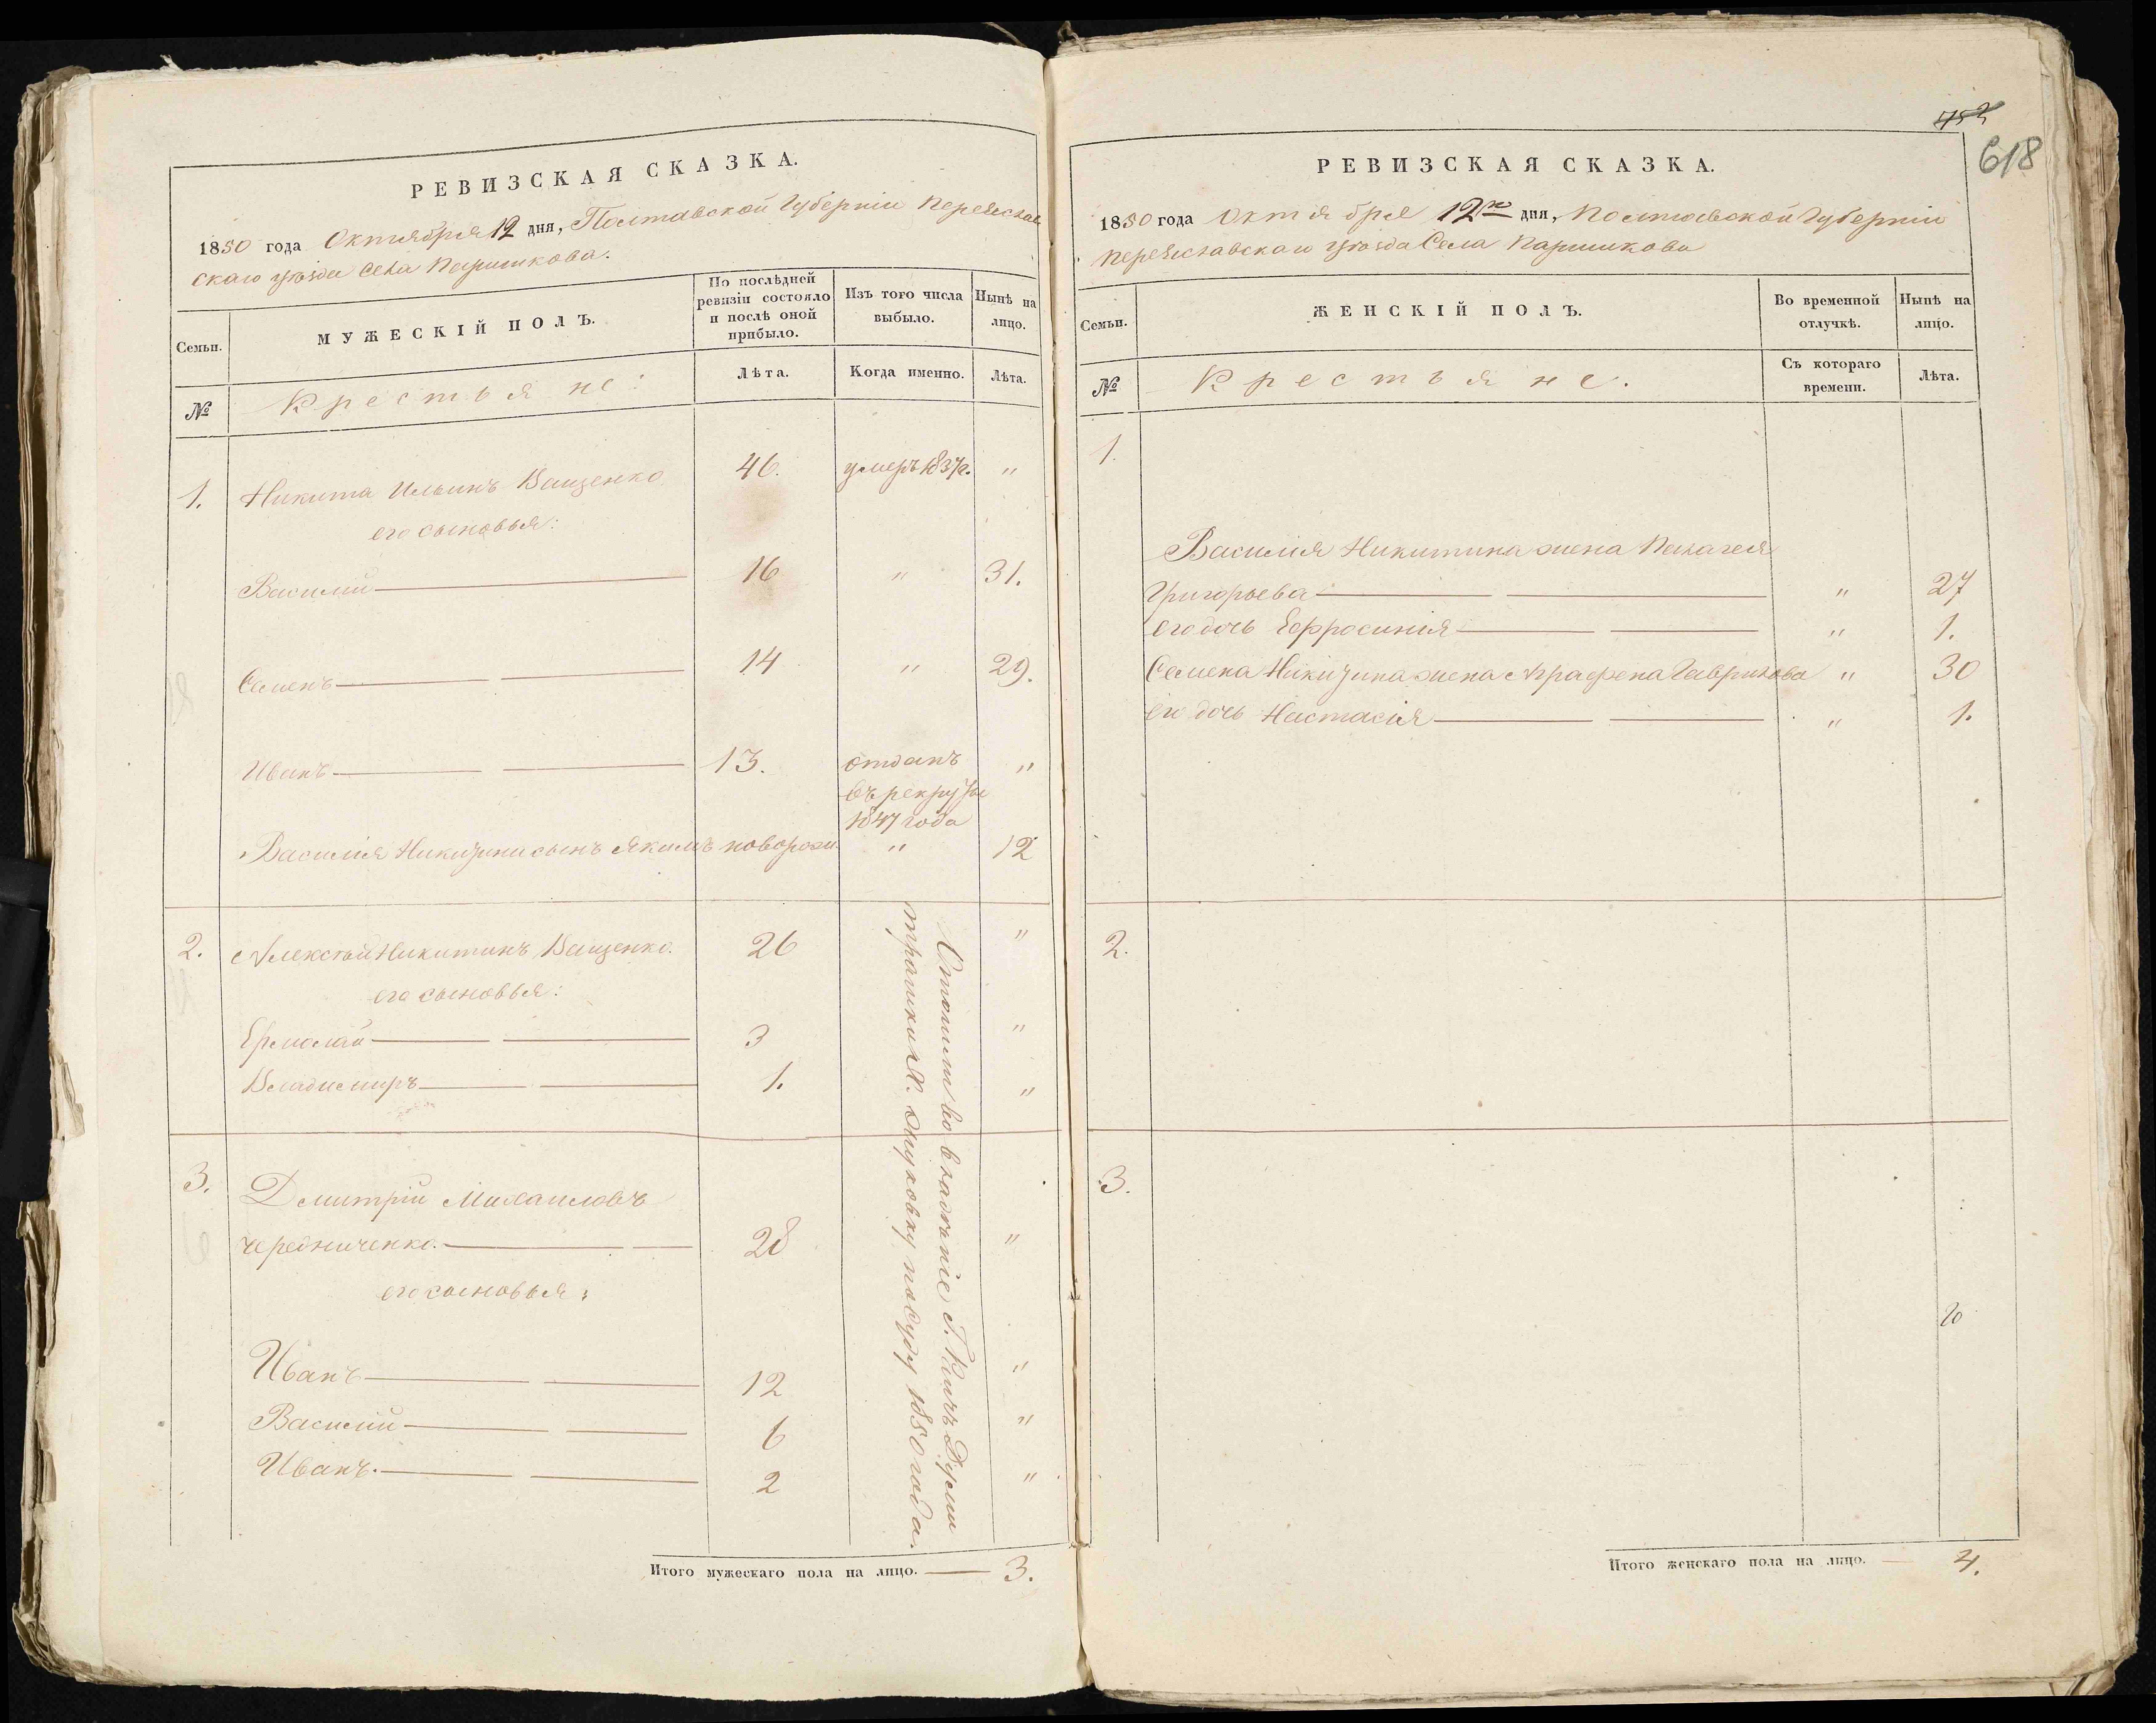 РЕВИЗСКАЯ СКАЗКА.
1850 года Октября 12 дня, Полтавской Губернии Переяслав
скаго уѣзда Села Паришкова.
Семьи.
МУЖЕСКІЙ ПОЛЪ.
По послѣдней
ревизіи состояло
и послѣ оной
прибыло.
Изъ того числа
выбыло.
Нынѣ на
лицо.
№
Крестьяне:
Лѣта.
Когда именно.
Лѣта.
1. Никита Ильинъ Ващенко 46. умеръ 1837г. "
его сыновья:
Василій 16 " 31.
Семенъ 14 " 29.
Иванъ 13. отданъ "
въ рекруты
1847 года
Василія Никитина сынъ Якимъ новорож " 12
2. Алексѣй Никитинъ Ващенко. 26 "
его сыновья:
Ермолай 3 "
Владимиръ 1. "
3. Дмитрій Михаиловъ
Чередниченко. 28 "
его сыновья:
Иванъ 12 "
Василій 6 "
Иванъ. 2 "
во владѣніе Г.
1850 года.
Итого мужескаго пола на лицо. 3.
752
618
РЕВИЗСКАЯ СКАЗКА.
1850 года Октября 12го дня, Полтавской Губерніи
Переяславскаго уѣзда Села Паришкова
Семьи.
ЖЕНСКІЙ ПОЛЪ.
Во временной
отлучкѣ.
Нынѣ на
лицо.
№
Крестьяне.
Съ котораго
времени.
Лѣта.
1.
Василія Никитина жена Пелагея
Григорьева " 27
его дочь Ефросинія " 1.
Семена Никитина жена Аграфена Гаврилова " 30
его дочь Настасія " 1.
2.
3.
Итого женскаго пола на лицо. 4.